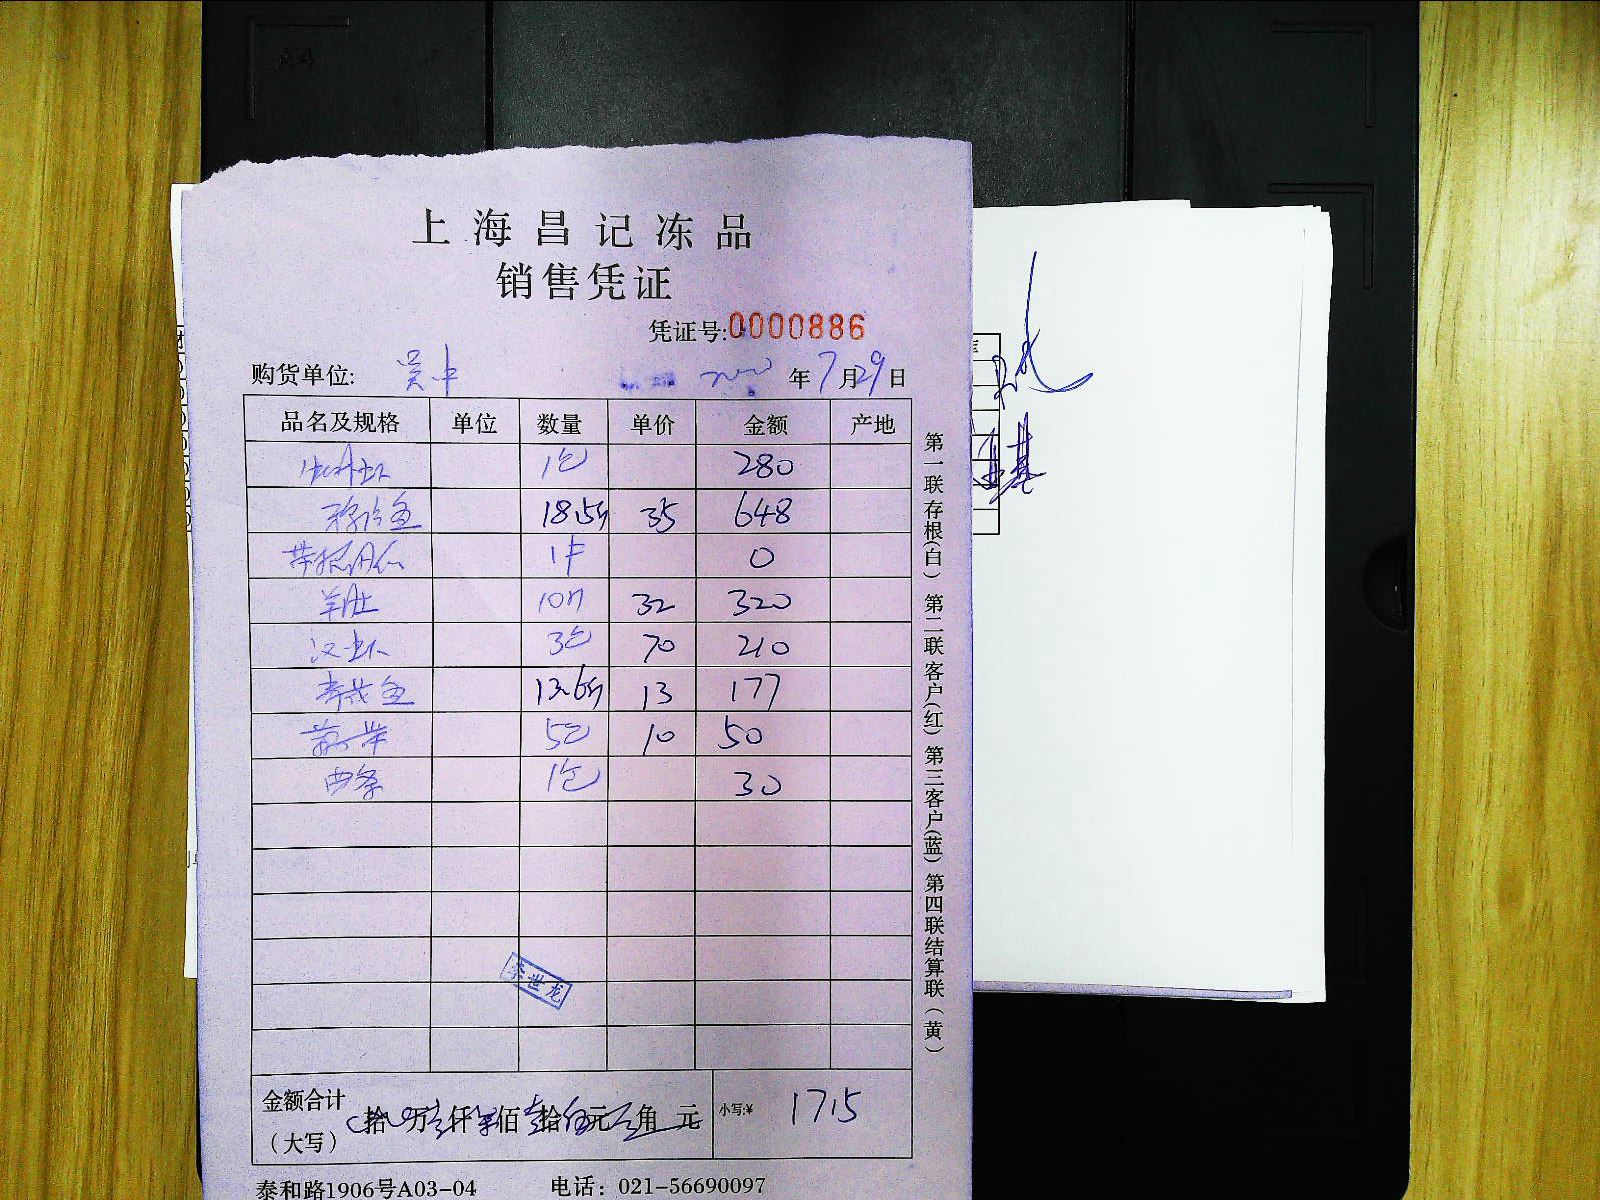 A4
上海昌记冻品
销售凭证
凭证号:0000886
购货单位: 吴中 年7月29日
品名及规格 单位 数量 单价 金额 产地
1包 280
鱼 18.5斤 35 648
1件 0
羊肚 10斤 32 320
汉虾 3包 70 210
鱼 13.6斤 13 177
5包 10 50
1包 30
李世龙
金额合计(大写) 拾 万 仟 佰 拾 元 角 元 小写:¥ 1715
泰和路1906号A03-04 电话：021-56690097
第一联存根(白) 第二联客户(红) 第三客户(蓝) 第四联结算联(黄)